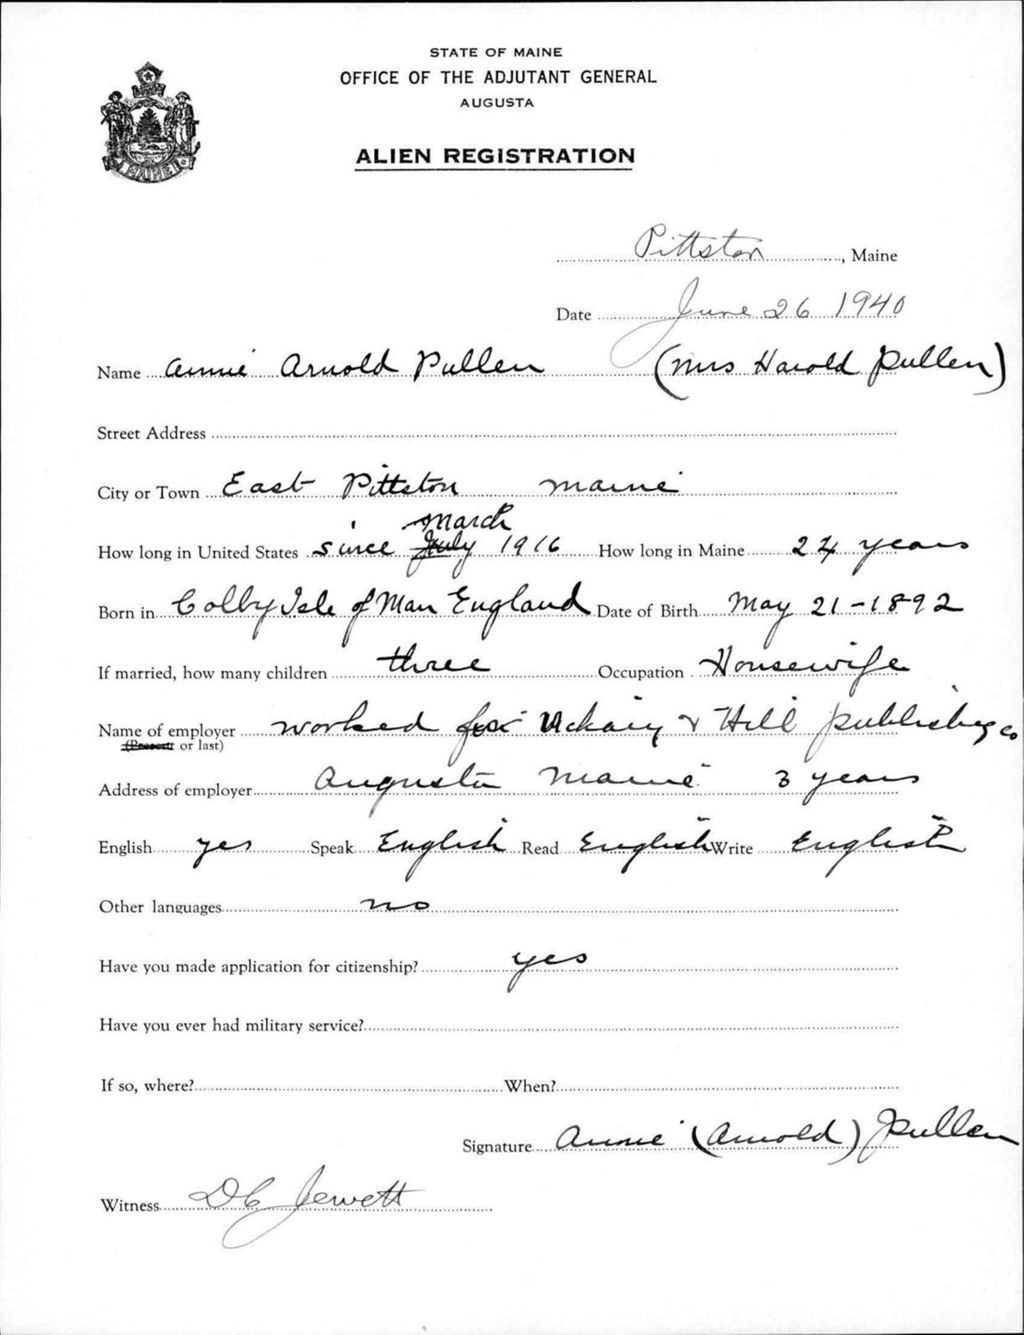 STATE OF MAINE
OFFICE OF THE ADJUTANT GENERAL
AUGUSTA
ALIEN REGISTRATION
MAINE
Pittston, Maine
Date June 26 1940
Name Annie Arnold Pullen (Mrs Harold Pullen)
Street Address
City or Town East Pittston Maine
March
How long in United States since July 1916 How long in Maine 24 years
Born in Colby Isle of Man England Date of Birth May 21-1892
If married, how many children three Occupation Housewife
Name of employer worked for & Hill publishing co
(Present or last)
Address of employer Augusta Maine 3 years
English yes Speak English Read English Write English
Other languages no
Have you made application for citizenship? yes
Have you ever had military service?
If so, where? When?
Signature Annie (Arnold) Pullen
Witness D C Jewett